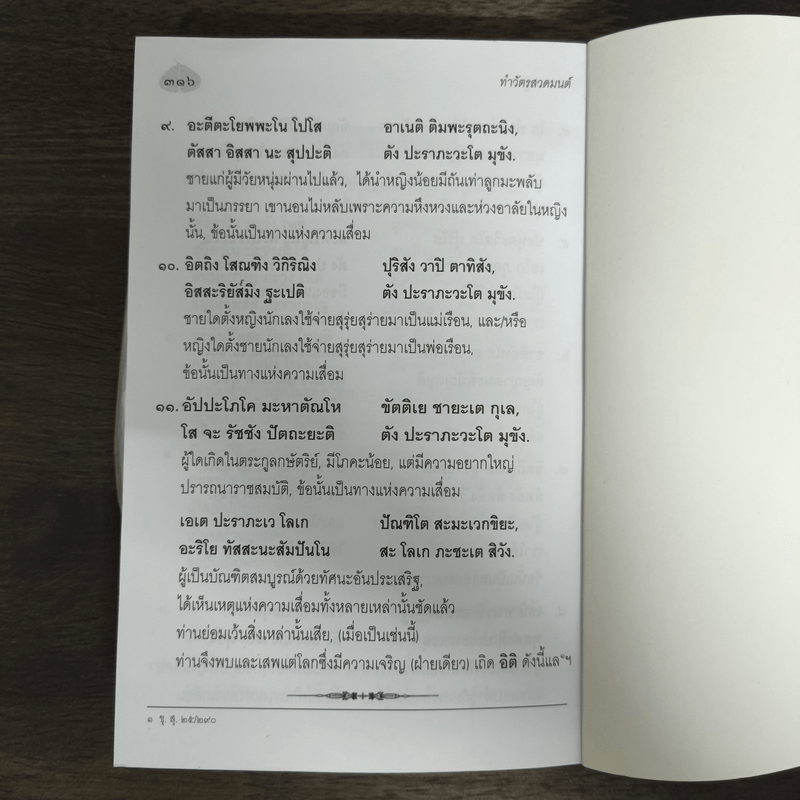 ๓๑๖ ทำวัตรสวดมนต์
๙. อะตีตะโยพพะโน โปโส อาเนติ ติมพะรุตถะนิง,
ตัสสา อิสสา นะ สุปปะติ ตัง ปะราภะวะโต มุขัง.
ชายแก่ผู้มีวัยหนุ่มผ่านไปแล้ว, ได้นำหญิงน้อยมีถันเท่าลูกมะพลับ
มาเป็นภรรยา เขานอนไม่หลับเพราะความหึงหวงและห่วงอาลัยในหญิง
นั้น, ข้อนั้นเป็นทางแห่งความเสื่อม
๑๐. อิตถิง โสณฑิง วิกิริณิง ปุริสัง วาปิ ตาทิสัง,
อิสสะริยัส๎มิง ฐะเปติ ตัง ปะราภะวะโต มุขัง.
ชายใดตั้งหญิงนักเลงใช้จ่ายสุรุ่ยสุร่ายมาเป็นแม่เรือน, และ/หรือ
หญิงใดตั้งชายนักเลงใช้จ่ายสุรุ่ยสุร่ายมาเป็นพ่อเรือน,
ข้อนั้นเป็นทางแห่งความเสื่อม
๑๑. อัปปะโภโค มะหาตัณโห ขัตติเย ชายะเต กุเล,
โส จะ รัชชัง ปัตถะยะติ ตัง ปะราภะวะโต มุขัง.
ผู้ใดเกิดในตระกูลกษัตริย์, มีโภคะน้อย, แต่มีความอยากใหญ่
ปรารถนาราชสมบัติ, ข้อนั้นเป็นทางแห่งความเสื่อม
เอเต ปะราภะเว โลเก ปัณฑิโต สะมะเวกขิยะ,
อะริโย ทัสสะนะสัมปันโน สะ โลเก ภะชะเต สิวัง.
ผู้เป็นบัณฑิตสมบูรณ์ด้วยทัศนะอันประเสริฐ,
ได้เห็นเหตุแห่งความเสื่อมทั้งหลายเหล่านั้นชัดแล้ว
ท่านย่อมเว้นสิ่งเหล่านั้นเสีย, (เมื่อเป็นเช่นนี้)
ท่านจึงพบและเสพแต่โลกซึ่งมีความเจริญ (ฝ่ายเดียว) เถิด อิติ ดังนี้แล๑ฯ
๑ ขุ. สุ. ๒๕/๒๙๐